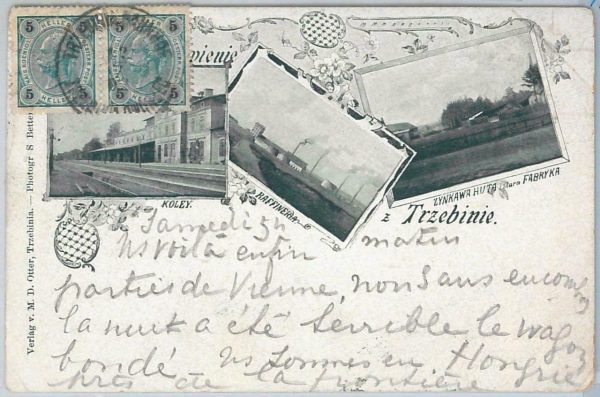 5 5 5 5
HELLER HELLER
wienie
KOLEY.
RAFFINERIA
ZYNKAWA HUTA FABRYKA
z Trzebinie.
Verlag v. M. D. Otter, Trzebinia. — Photogr S Better
Samedi matin
Ns voilà enfin
parties de Vienne, non sans encom
la nuit a été terrible le wagon
bondé ns sommes en Hongrie
près de la frontière